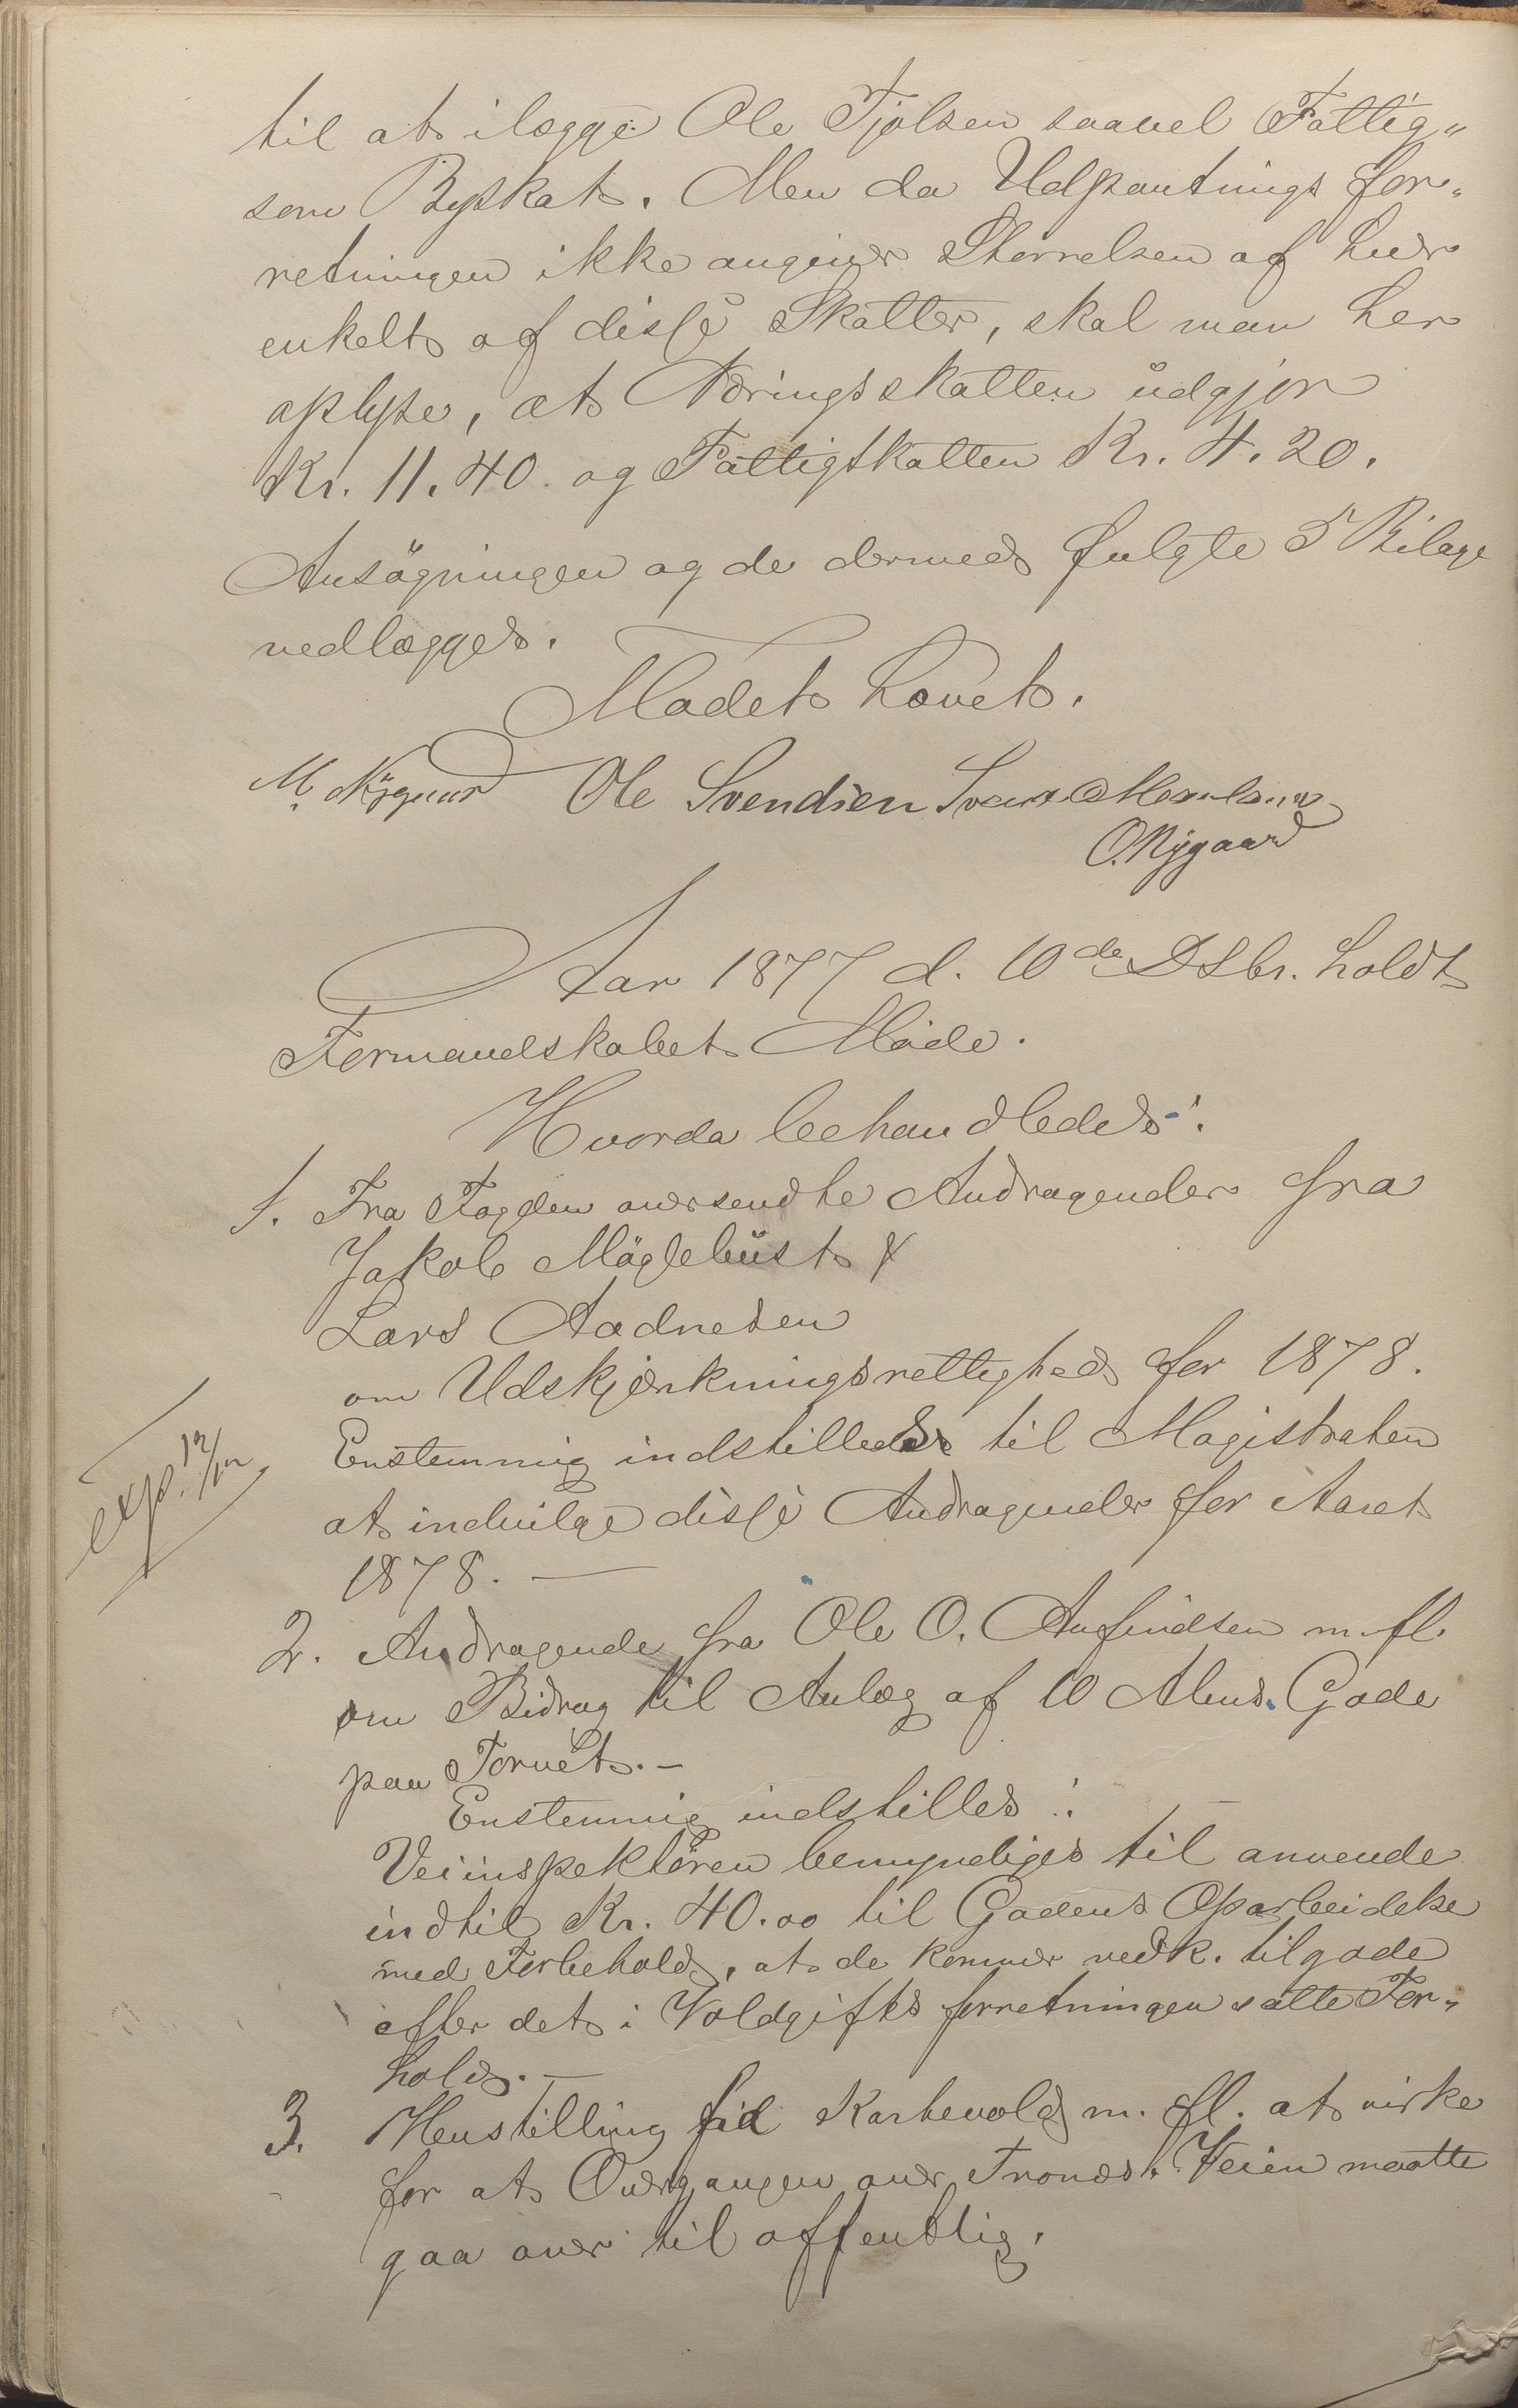 til at ilægge Ole Tjølsen saavel Fattig„
som Byskat. Men da Udpantnings for„
retningen ikke angiver Størrelsen af hver
enkelt af disse Skatter, skal man her
oplyse, at Næringsskatten udgjør
Kr. 11.40 og Fattigskatten Kr. 4.20.
Ansøgningen og de dermed fulgte 5 Bilage
vedlægges.
Mødet hævet.
M. Nygaard Ole Svendsen
O. Nygaard
Aar 1877 d. 10de Dsbr. holdt
Formandskabet Møde.
Hvorda behandledes:
1. Fra Fogden oversendte Andragender fra
Jakob Møglebust &
Lars Aadnesen
om Udskjænkningsrettighed for 1878.
Enstemmig indstilledes til Magistraten
at indvilge disse Andragender for Aaret
1878. —
exp. 12/12
2. Andragende fra Ole O. Anfindsen m. fl.
om Bidrag til Anlæg af 10 Alens Gade
paa Torvet. –
Enstemmig indstilles:
Veiinspektøren bemyndiges til anvende
indtil Kr. 40.00 til Gadens Oparbeidelse
med Forbehold, at de kommer vedk. tilgode
efter det i Voldgiftsforretningen satte For„
hold. —
3. Henstilling fra Kartevold m. fl. at virke
for at Overgangen over Veien maatte
gaa over til offentlig.